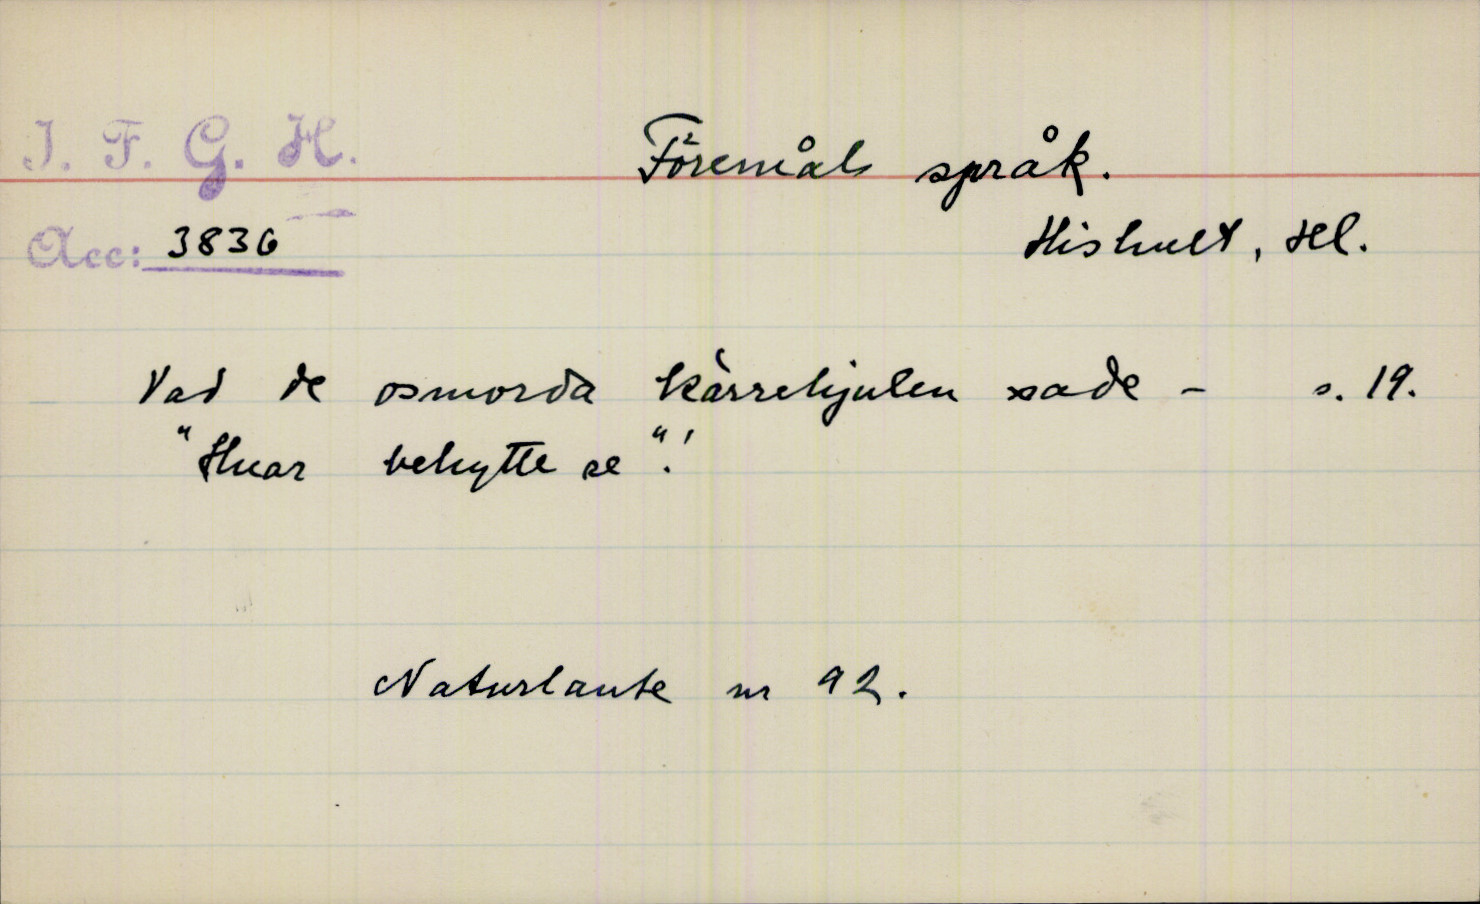 I. F. G. H.
Föremåls språk.
Acc: 3836
Hishult, Hl.
Vad de osmorda kärrehjulen sade - s. 19.
"Huar behytte se".'
Naturlaute nr 92.